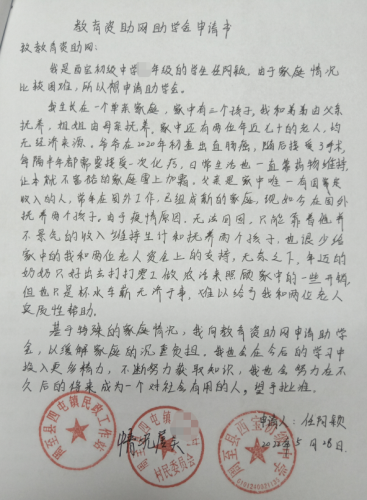 教育资助网助学金申请书
致教育资助网:
我是西宝初级中学 年级的学生任阿颖,由于家庭情况
比较困难,所以想申请助学金。
我生长在一个单亲家庭,家中有三个孩子,我和弟弟由父亲
抚养,姐姐由母亲抚养,家中还有两位年近七十的老人,均
无经济来源,爷爷在2020年初查出直肠癌,随后接受手术,
每隔半年都需要接受一次化疗,日常生活也一直靠药物维持,
让本就不富裕的家庭雪上加霜,父亲是家中唯一有固定
收入的人,常年在国外工作,已组成新的家庭,现如今在国外
抚养两个孩子,由于疫情原因,无法回国,只能靠着他并
不景气的收入维持生计和抚养两个孩子,也很少给
家中的我和两位老人资金上的支持,无奈之下,年迈的
奶奶只好出去打打零工做农活来照顾家中的一些开销,
但也只是杯水车薪无济于事,难以给予我和两位老人
实质性帮助。
基于特殊的家庭情况,我向教育资助网申请助学
金,以缓解家庭的沉重负担。我也会在今后的学习中
投入更多精力,不断努力获取知识,我也会努力在不
久后的将来成为一个对社会有用的人,望予批准。
申请人:任阿颖
2022年5月28日
情况属实
周至县四屯镇民政工作站
四屯镇
村民委员会
周至县西宝初级中学